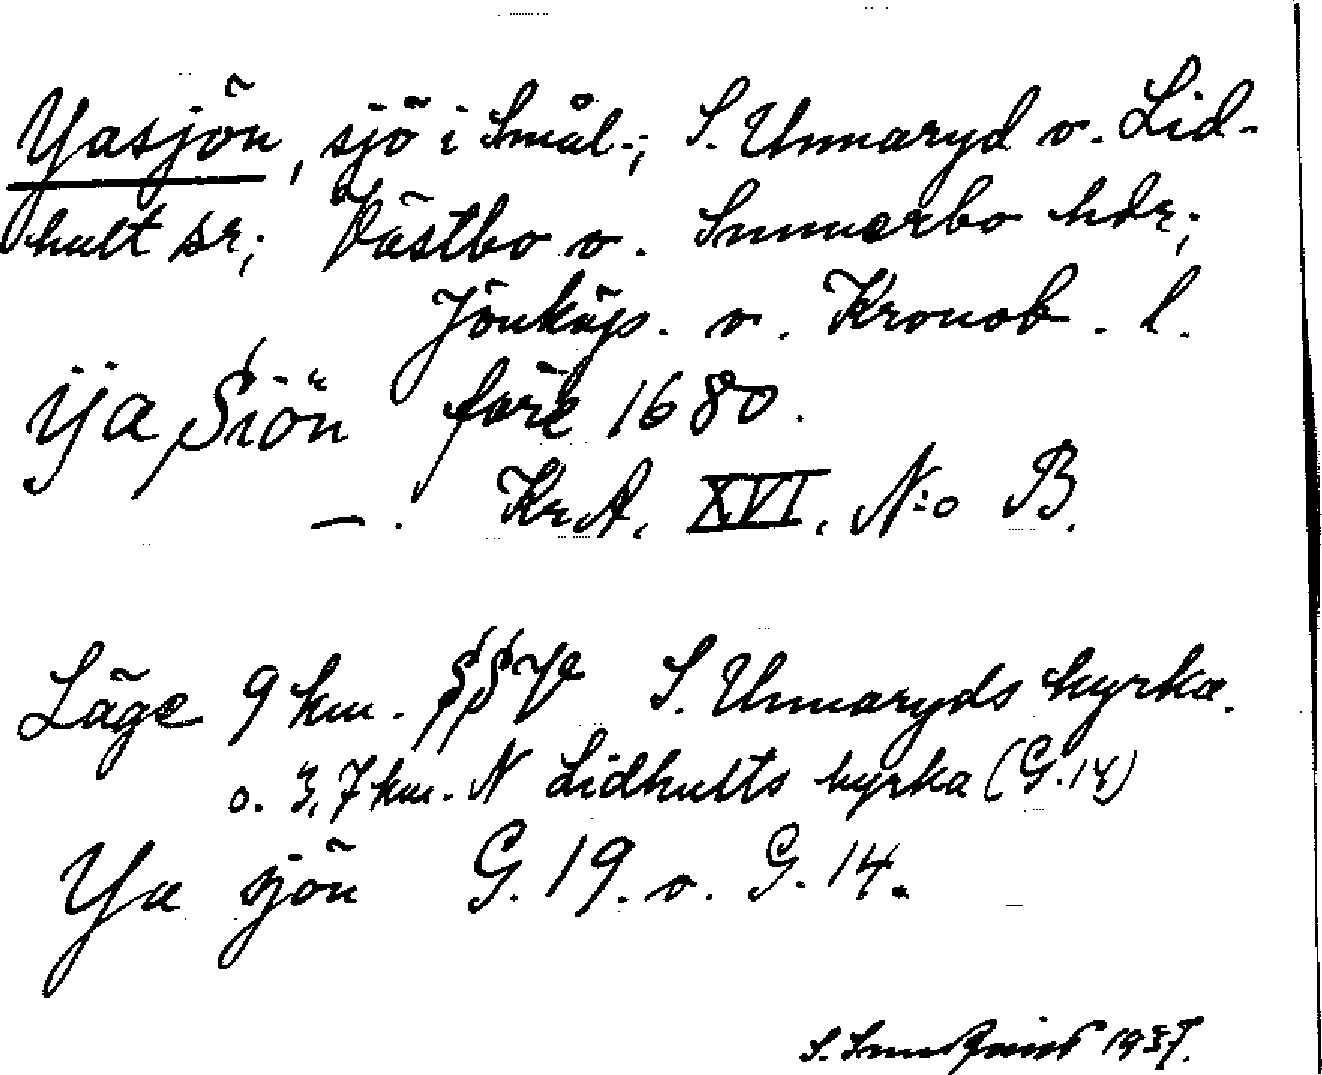 Yasjön, sjö i Smål.; S. Unnaryd o. Lid-
hult sr; Västbo o. Sunnerbo hdr;
Jönköp. o. Kronob. l.
ÿa Siön före 1680.
—. Kr.A. XVI. N:o B.
Läge 9 km. SSV S. Unnaryds kyrka.
o. 3,7 km. N Lidhults kyrka (G.14)
Ya sjön G. 19. o. G. 14.
1937.